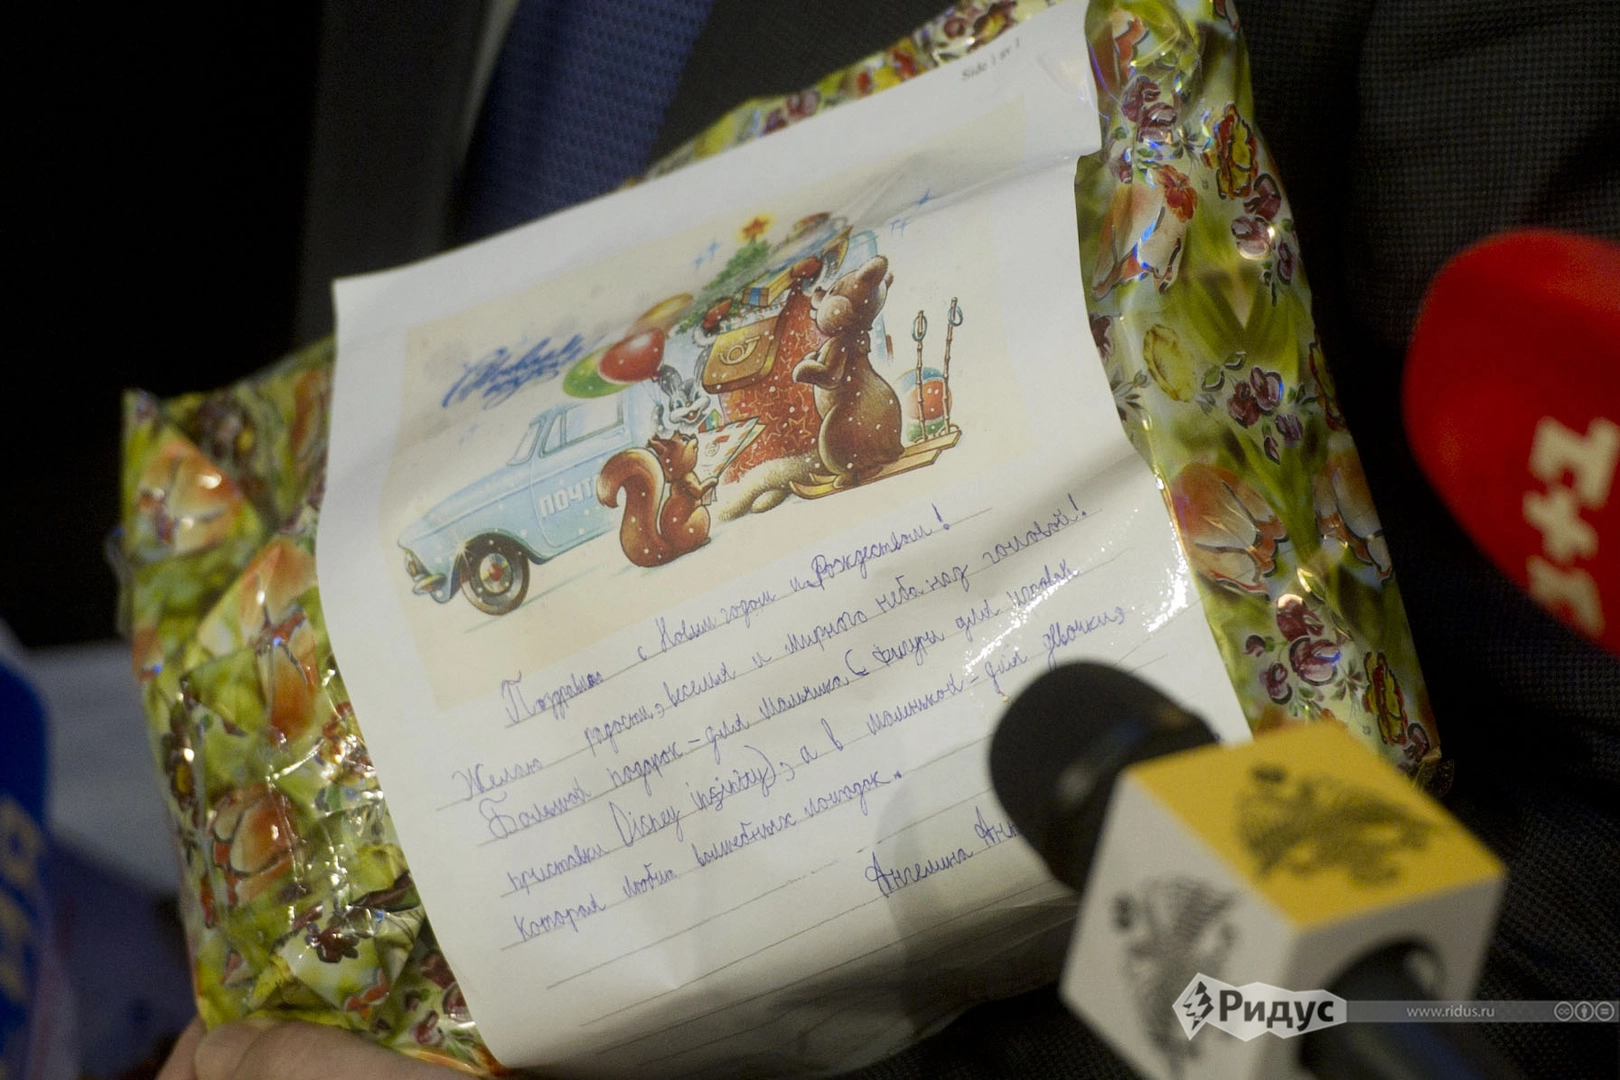 Side 1 av 1
С Новым годом
ПОЧТ
Поздравляю с Новым годом и Рождеством!
Желаю радости, веселия и мирного неба над головой!
Большой подарок – для мальчика ( фигуры для игровой
приставки Disney infinity), а в маленьком – для девочки,
которая любит волшебных лошадок.
Ангелина
Ридус
www.ridus.ru